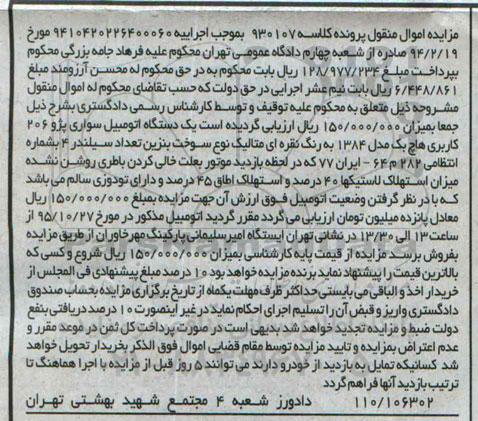 مزایده اموال منقول پرونده کلاسه ۹۳۰۱۰۷ بموجب اجراییه ۹۴۱۰۴۲۰۲۲۶۴۰۰۰۶۰ مورخ
۹۴/۲/۱۹ صادره از شعبه چهارم دادگاه عمومی تهران محکوم علیه فرهاد جامه بزرگی محکوم
بپرداخت مبلغ ۱۲۸/۹۷۷/۲۳۴ ریال بابت محکوم به در حق محکوم له محسن آرزومند مبلغ
۶/۴۴۸/۸۶۱ ریال بابت نیم عشر اجرایی در حق دولت که حسب تقاضای محکوم له اموال منقول
مشروحه ذیل متعلق به محکوم علیه توقیف و توسط کارشناس رسمی دادگستری بشرح ذیل
جمعا بمیزان ۱۵۰/۰۰۰/۰۰۰ ریال ارزیابی گردیده است یک دستگاه اتومبیل سواری پژو ۲۰۶
کاربری هاچ بک مدل ۱۳۸۴ به رنگ نقره ای متالیک نوع سوخت بنزین تعداد سیلندر ۴ بشماره
انتظامی ۲۸۲ م ۶۴ - ایران ۷۷ که در لحظه بازدید موتور بعلت خالی کردن باطری روشن نشده
میزان استهلاک لاستیکها ۴۰ درصد و استهلاک اطاق ۴۵ درصد و دارای تودوزی سالم می باشد
که با در نظر گرفتن وضعیت اتومبیل فوق ارزش آن جهت مزایده بمبلغ ۱۵۰/۰۰۰/۰۰۰ ریال
معادل پانزده میلیون تومان ارزیابی می گردد مقرر گردید اتومبیل مذکور در مورخ ۹۵/۱۰/۲۷ از
ساعت ۱۳ الی ۱۳/۳۰ در نشانی تهران ایستگاه امیرسلیمانی پارکینگ مهرخاوران از طریق مزایده
بفروش برسد مزایده از قیمت پایه کارشناسی بمیزان ۱۵۰/۰۰۰/۰۰۰ ریال شروع و کسی که
بالاترین قیمت را پیشنهاد نماید برنده مزایده خواهد بود ۱۰ درصد مبلغ پیشنهادی فی المجلس از
خریدار اخذ و الباقی می بایستی حداکثر ظرف مهلت یکماه از تاریخ برگزاری مزایده بحساب صندوق
دادگستری واریز و قبض آن را تسلیم اجرای احکام نماید در غیر اینصورت ۱۰ درصد دریافتی بنفع
دولت ضبط و مزایده تجدید خواهد شد بدیهی است در صورت پرداخت کل ثمن در موعد مقرر و
عدم اعتراض بمزایده و تایید مزایده توسط مقام قضایی اموال فوق الذکر بخریدار تحویل خواهد
شد کسانیکه تمایل به بازدید از خودرو دارند می توانند ۵ روز قبل از مزایده با اجرا هماهنگ تا
ترتیب بازدید آنها فراهم گردد
۱۱۰/۱۰۶۳۰۲ دادورز شعبه ۴ مجتمع شهید بهشتی تهران